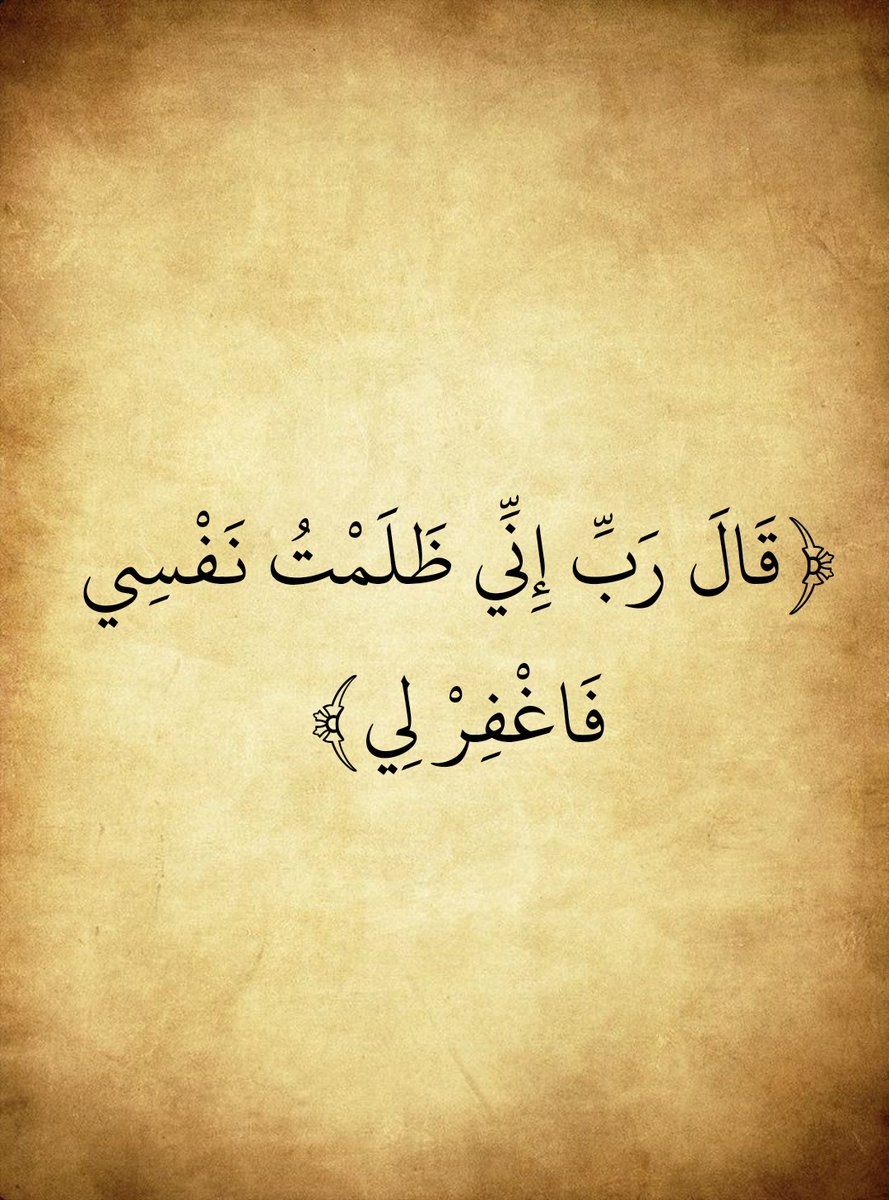 ﴿قَالَ رَبِّ إِنِّي ظَلَمْتُ نَفْسِي
فَاغْفِرْ لِي﴾